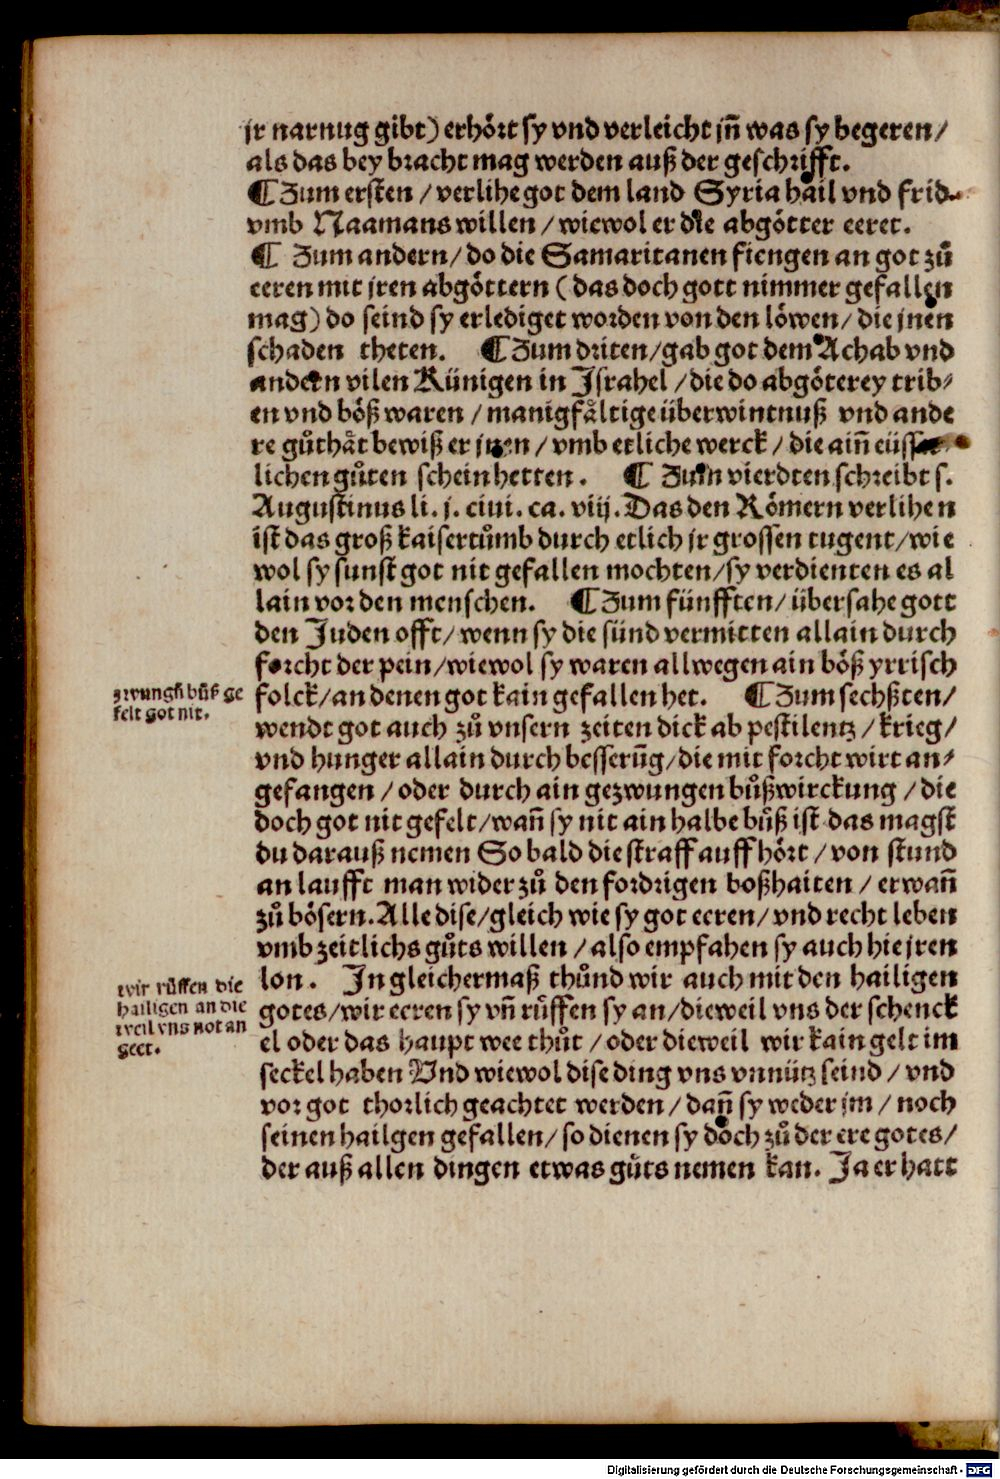 jr narnug gibt) erhört sy vnd verleicht jn̄ was sy begeren/
als das bey bracht mag werden auß der geschrifft.
¶ Zum ersten / verlihe got dem land Syria hail vnd frid
vmb Naamans willen / wiewol er die abgötter eeret.
¶ Zum andern / do die Samaritanen fiengen an got zů
eeren mit jren abgöttern ( das doch gott nimmer gefallen
mag) do seind sy erlediget worden von den löwen / die jnen
schaden theten. ¶ Zum driten/gab got dem Achab vnd
andern vilen Künigen in Jsrahel / die do abgöterey trib⸗
en vnd böß waren / manigfåltige überwintnuß vnd ande
re gůthåt bewiß er jnen / vmb etliche werck / die ain̄ eüsser
lichen gůten schein hetten. ¶ Zum vierdten schreibt s.
Augustinus li. j. ciui. ca. viij. Das den Römern verlihen
ist das groß kaisertůmb durch etlich jr grossen tugent/wie
wol sy sunst got nit gefallen mochten/sy verdienten es al
lain vor den menschen. ¶ Zum fünfften/übersahe gott
den Juden offt/wenn sy die sünd vermitten allain durch
forcht der pein/wiewol sy waren allwegen ain böß yrrisch
zwungn̄ bůß ge
felt got nit.
folck/an denen got kain gefallen het. ¶ Zum sechßten/
wendt got auch zů vnsern zeiten dick ab pestilentz / krieg/
vnd hunger allain durch besserūg/die mit forcht wirt an⸗
gefangen / oder durch ain gezwungen bůßwirckung / die
doch got nit gefelt/wan̄ sy nit ain halbe bůß ist das magst
du darauß nemen So bald die straff auff hört / von stund
an laufft man wider zů den fordrigen boßhaiten / erwan̄
zů bösern. Alle dise/gleich wie sy got eeren/ vnd recht leben
vmb zeitlichs gůts willen / also empfahen sy auch hie jren
wir růffen die
hailigen an die
weil vns not an
geet.
lon. Jn gleichermaß thůnd wir auch mit den hailigen
gotes/wir eeren sy vn̄ růffen sy an/dieweil vns der schenck
el oder das haupt wee thůt / oder dieweil wir kain gelt im
seckel haben Vnd wiewol dise ding vns vnnütz seind / vnd
vor got thorlich geachtet werden / dan̄ sy weder jm / noch
seinen hailgen gefallen/ so dienen sy doch zů der ere gotes/
der auß allen dingen etwas gůts nemen kan. Ja er hatt
Digitalisierung gefördert durch die Deutsche Forschungsgemeinschaft - DFG